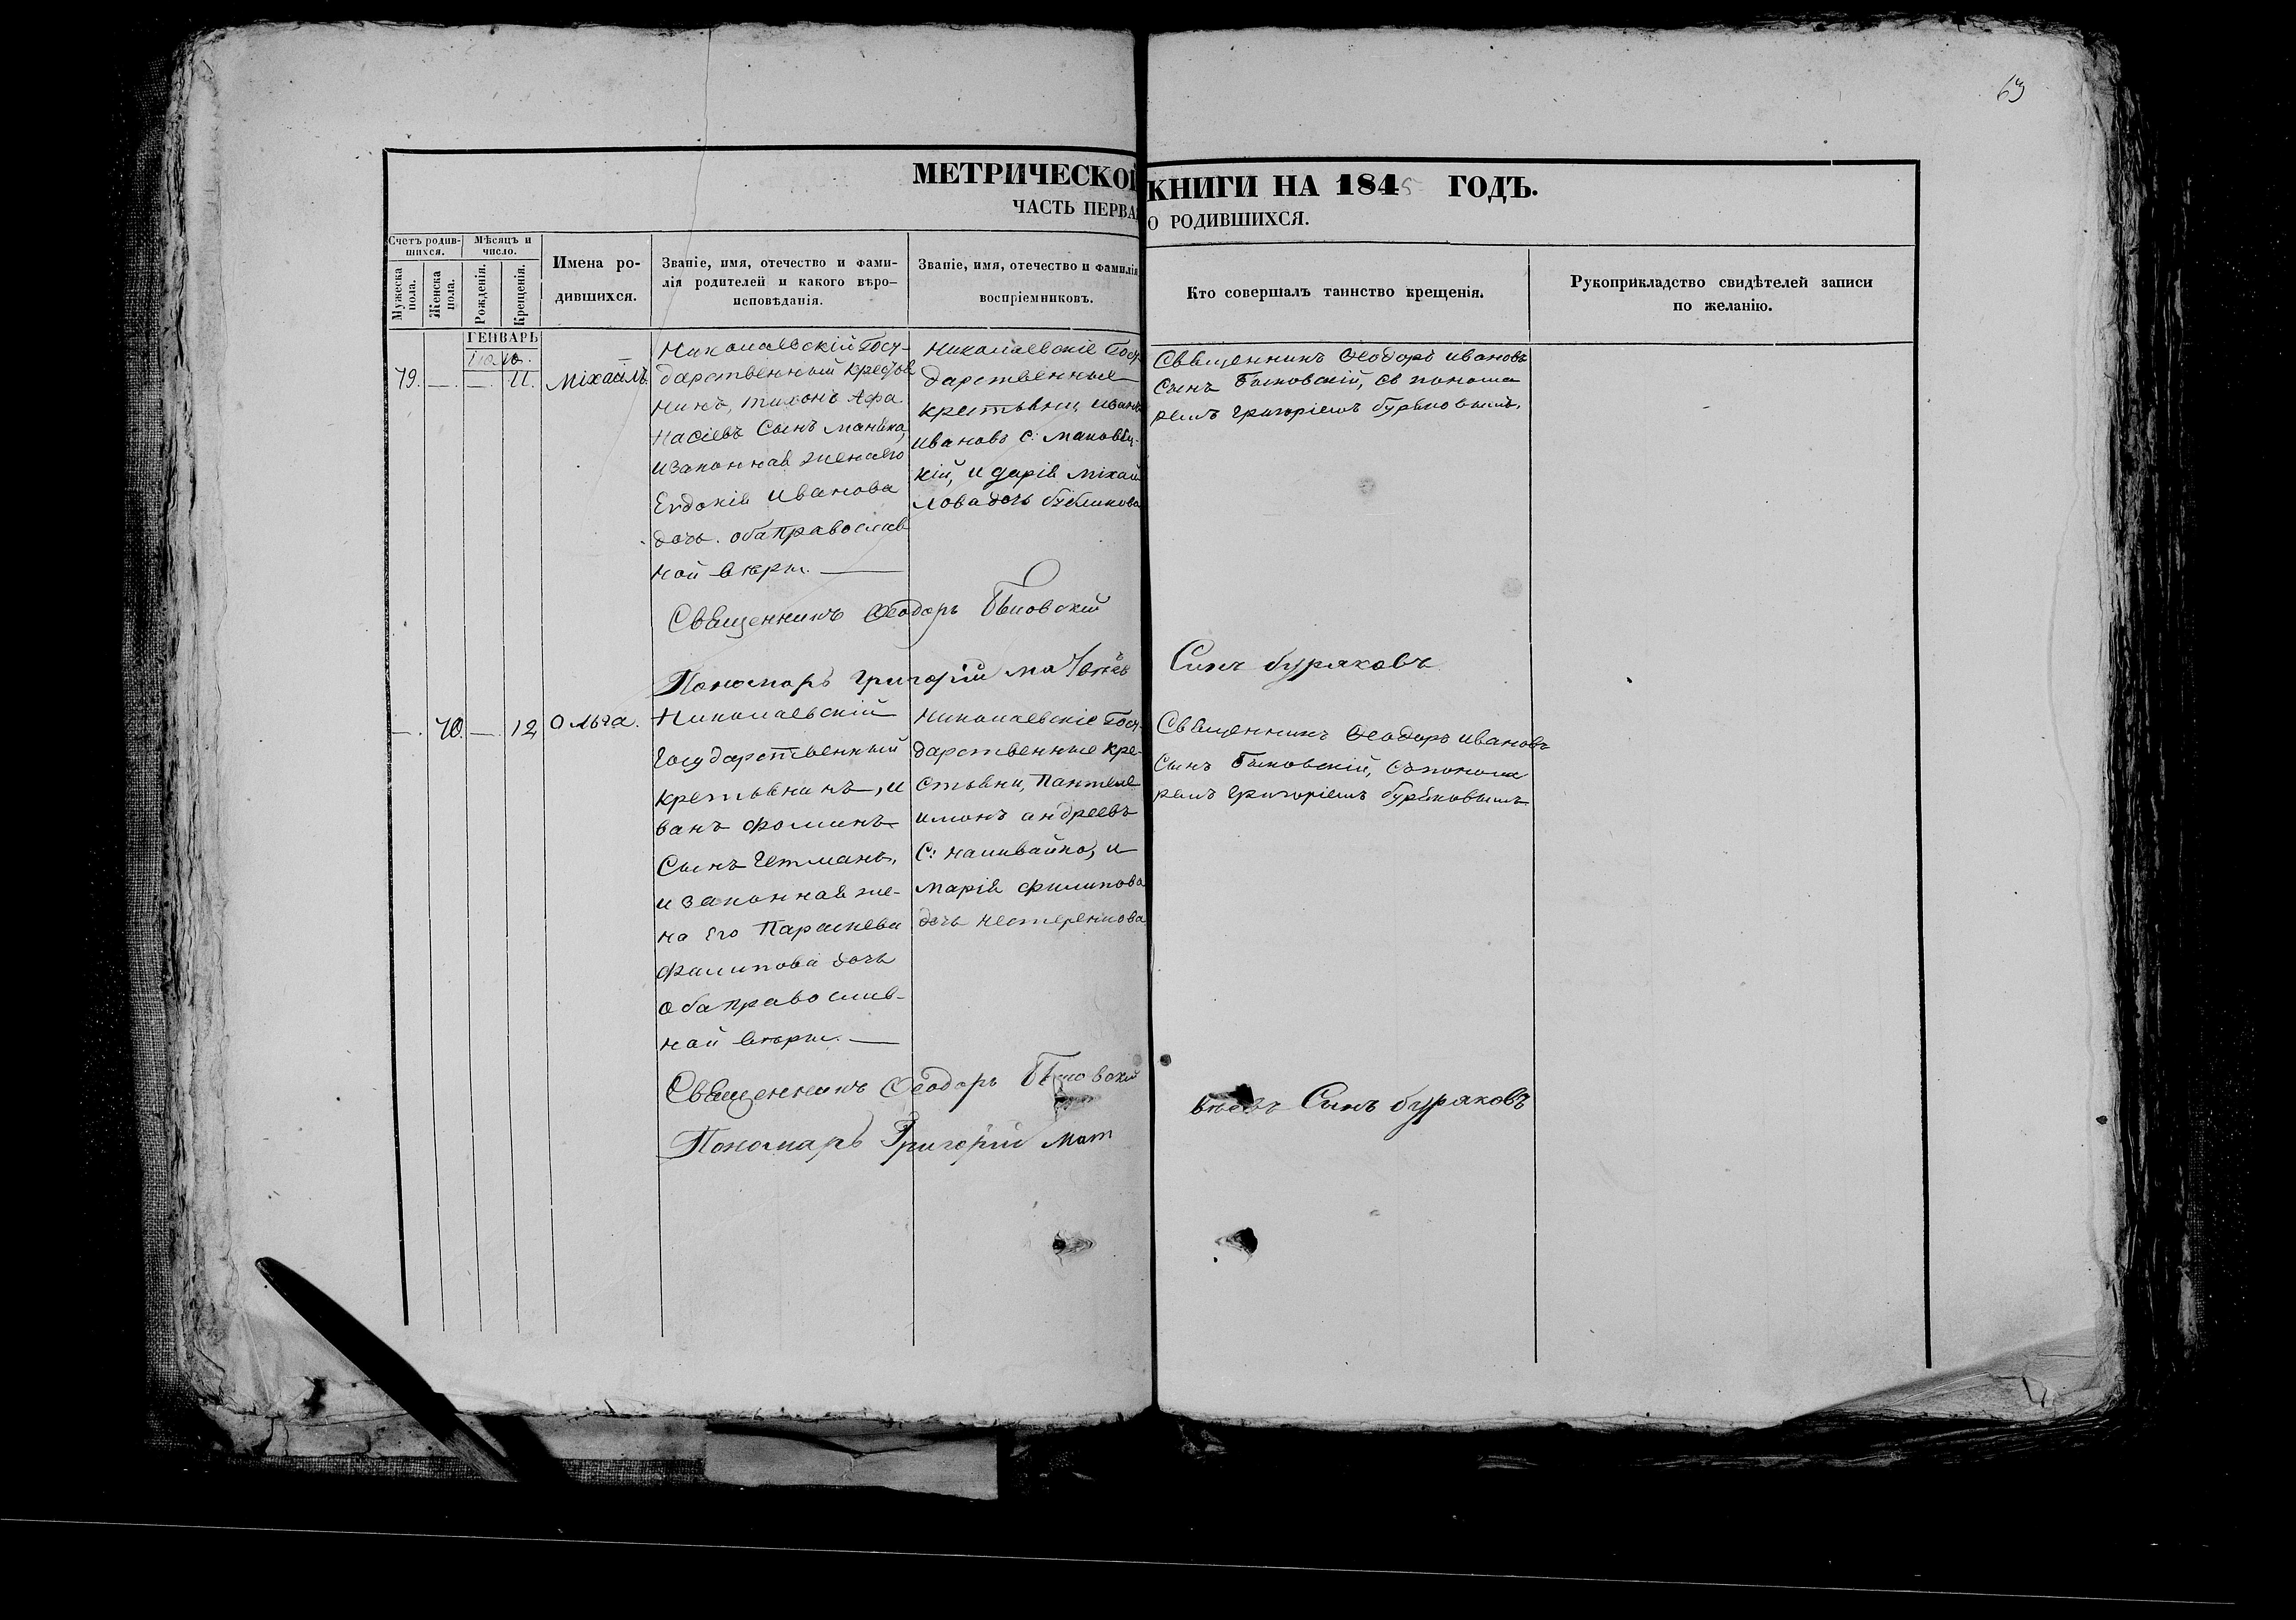 63
МЕТРИЧЕСКОЙ КНИГИ НА 1845 ГОДЪ.
ЧАСТЬ ПЕРВАЯ О РОДИВШИХСЯ.
Счетъ родившихся.
Мужеска пола.
Женска пола.
Мѣсяцъ и число.
Рожденія.
Крещенія.
Имена родившихся.
Званіе, имя, отечество и фамилія родителей и какого вѣроисповѣданія.
Званіе, имя, отечество и фамилія воспріемниковъ.
Кто совершалъ таинство крещенія.
Рукоприкладство свидѣтелей записи по желанію.
ГЕНВАРЬ
79. — . — 11. Міхаилъ.
Николаевскій Госу-
дарственный Крестья
нинъ, тихонъ Афа
насіевъ Сынъ
изаконная женаего
Евдокія Иванова
дочь. оба Православ
ной вѣры. —
Николаевскіе Госу-
дарственные
крестьяни, иванъ
ивановъ с:
кій, и дарія міхай
лова дочь бубликова
Священникъ Ѳеодоръ ивановъ
Сынъ Быковскій, съ понома
ремъ григоріемъ буряковымъ.
Священникъ Ѳеодоръ Быковскій
Пономарь григорій матвѣевъ Сынъ буряковъ
— . 70. — . 12 Ольга.
Николаевскій
Государственный
крестьянинъ, и
ванъ фоминъ
Сынъ Гетманъ,
и законная же-
на Его Параскева
филипова дочь
оба православ-
ной вѣры. —
Николаевскіе Госу-
дарственные кре-
стьяни, Пантеле
имонъ андреевъ
С: наливайко, и
марія филипова
дочь нестеренкова
Священникъ Ѳеодоръ ивановъ
Сынъ Быковскій, съ понома
ремъ григоріемъ буряковымъ
Священникъ Ѳеодоръ Быковскій
Пономарь Григорій мат вѣевъ Сынъ буряковъ